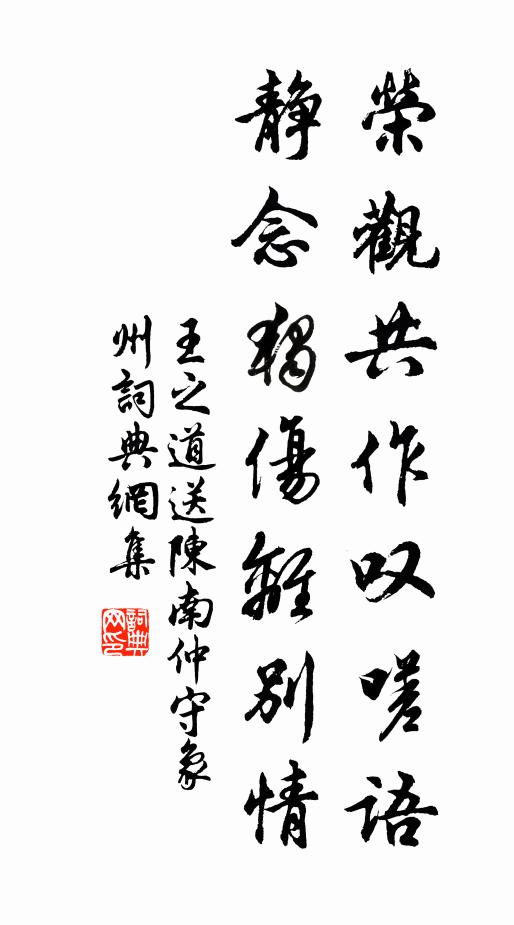 榮觀共作叹嗟語
静念獨傷離別情
王之道送陳南仲守象
州詞典網集
詞典
网印